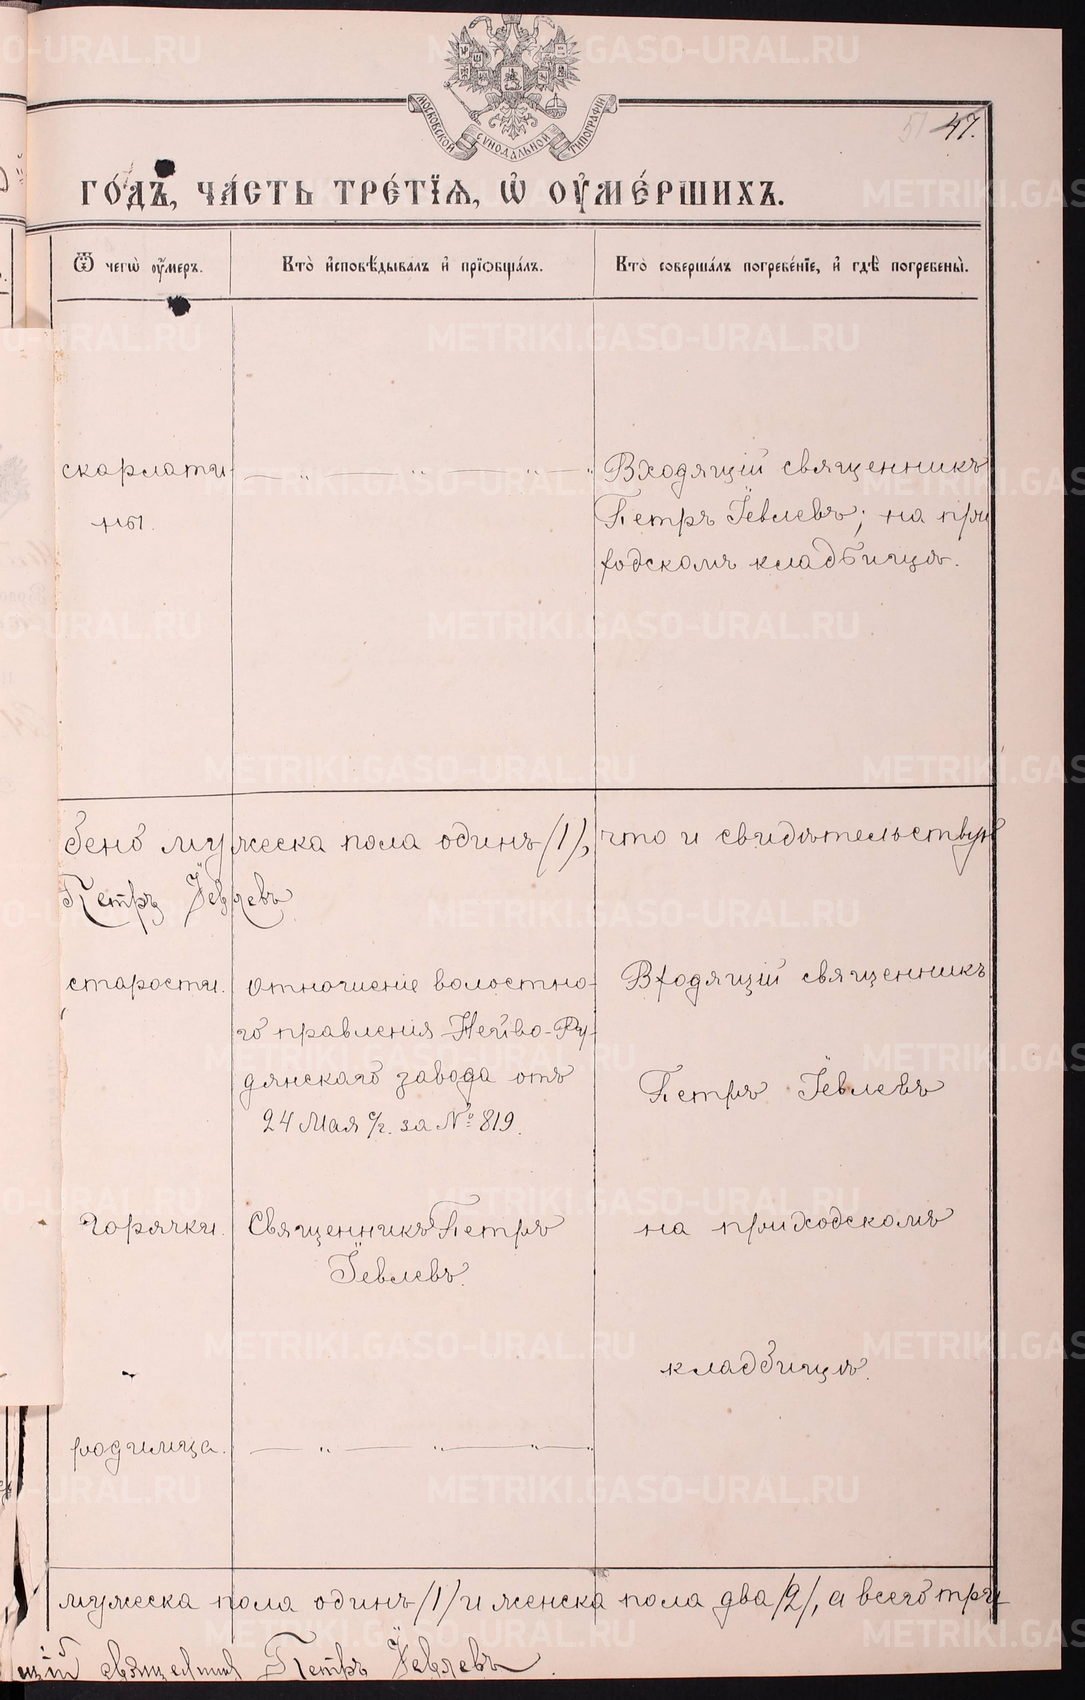 МОСКОВСКОЙ СУНОДАЛЬНОЙ ТИПОГРАФІИ
51 47.
ГО́ДЪ, ЧА́СТЬ ТРЕ́ТЇѦ, Ѡ҆ ОУ҆МЕ́РШИХЪ.
Ѿ чегѡ̀ оу҆́меръ.
Кто̀ и҆сповѣ́дывалъ и҆ прїѡбща́лъ.
Кто̀ соверша́лъ погребе́нїе, и҆ гдѣ̀ погребены̀.
скарлати
ны.
Входящій священникъ
Петръ Іевлевъ; на при
ходскомъ кладбищѣ.
бено мужеска пола одинъ /1/, что и свидѣтельствую
Петръ Іевлевъ
старости.
Отношеніе волостно-
го правленія Нейво-Ру-
дянскаго завода отъ
24 Мая с/г. за № 819.
Входящій священникъ
Петръ Іевлевъ
горячки.
Священникъ Петръ
Іевлевъ.
на приходскомъ
кладбищѣ.
родимца.
мужеска пола одинъ /1/ и женска пола два /2/, а всего три
щій священникъ Петръ Іевлевъ.
METRIKI.GASO-URAL.RU